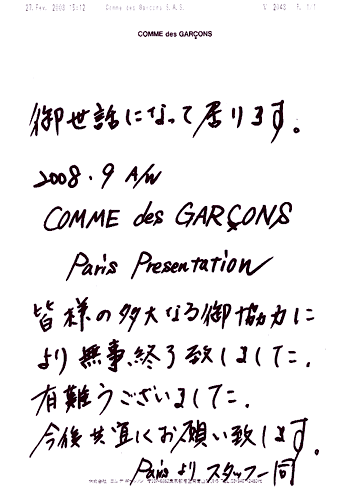 27.Fev. 2008 15:12 Comme des Garcons S.A.S. N° 2048 P. 1/1
COMME des GARÇONS
御世話になって居ります。
2008.9 A/W
COMME des GARÇONS
Paris Presentation
皆様の多大なる御協力に
より無事、終了致しました。
有難うございました。
今後共宜しくお願い致します。
Parisより スタッフ一同
株式会社 コム デ ギャルソン